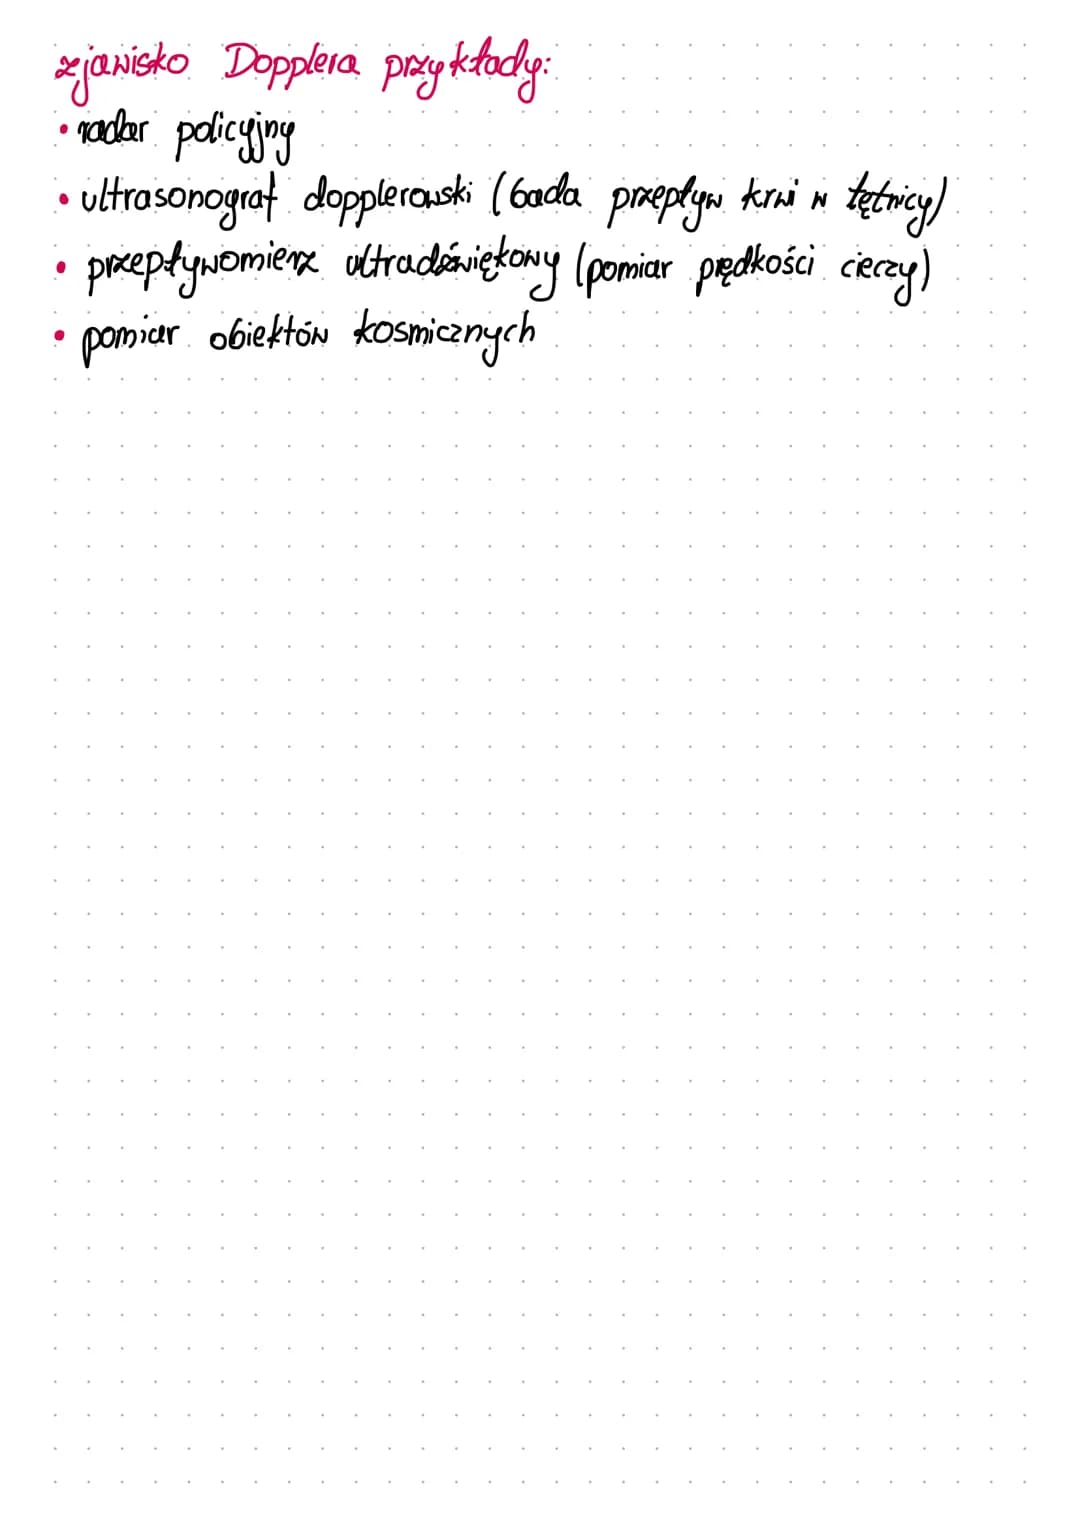 zjawisko Dopplera przykłady:
• radar policyjny
• ultrasonograf dopplerowski (bada przepływ krwi w tętnicy)
• przepływomierz ultradźwiękowy (pomiar prędkości cieczy)
• pomiar obiektów kosmicznych